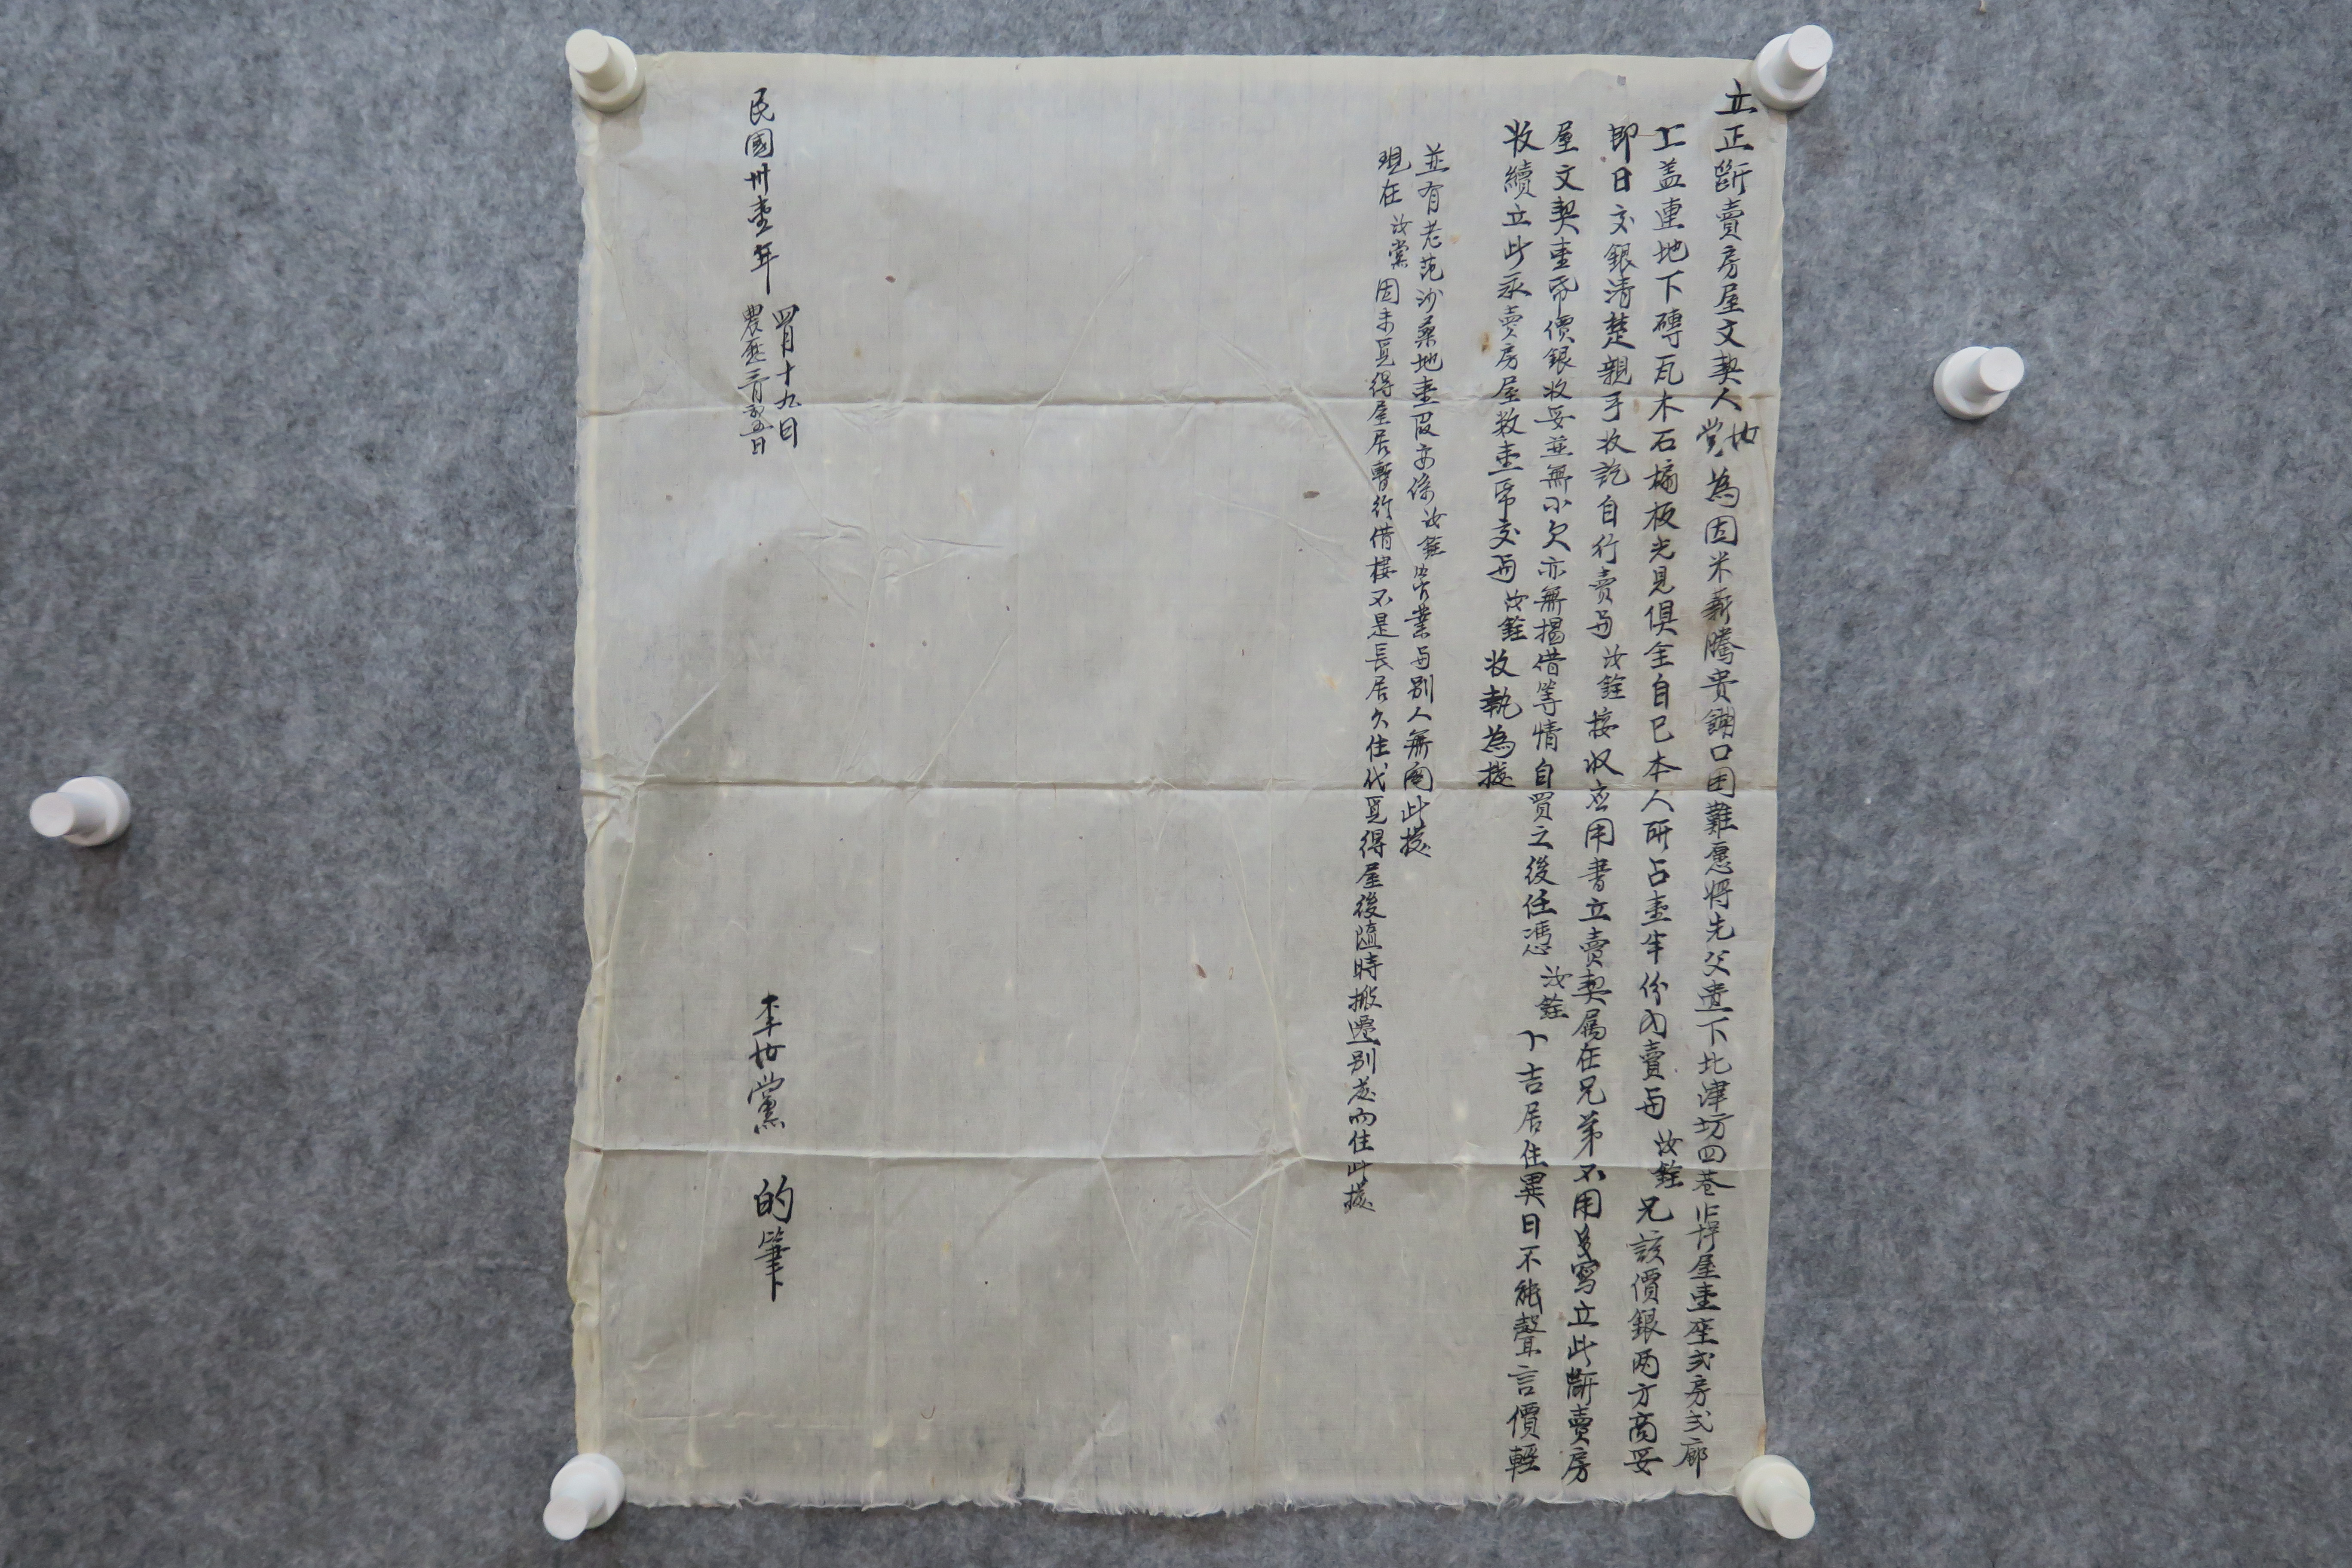 立正斷賣房屋文契人世黨為因米薪騰貴餬口困難愿將先父遺下北津坊四巷北停屋壹座弍房弍廊
上盖連地下磚瓦木石槅板光見俱全自已本人所占壹半份內賣与汝銓兄該價銀两方商妥
即日交銀清楚親手收訖自行賣与汝銓接收应用書立賣契属在兄弟不用多寫立此斷賣房
屋文契壹帋價銀收妥並無小欠亦無揭借等情自買之後任憑汝銓卜吉居住異日不能聲言價輕
收續立此永賣房屋数壹帋交与汝銓收執為據
並有老范沙桑地壹段亦係汝銓管業与別人無関此據
現在汝黨因未覓得屋居暫行借棲不是長居久住代覓得屋後随時搬遷別處而住此據
民國卅壹年
四月十九日
農歷三月初五日
李世黨 的筆